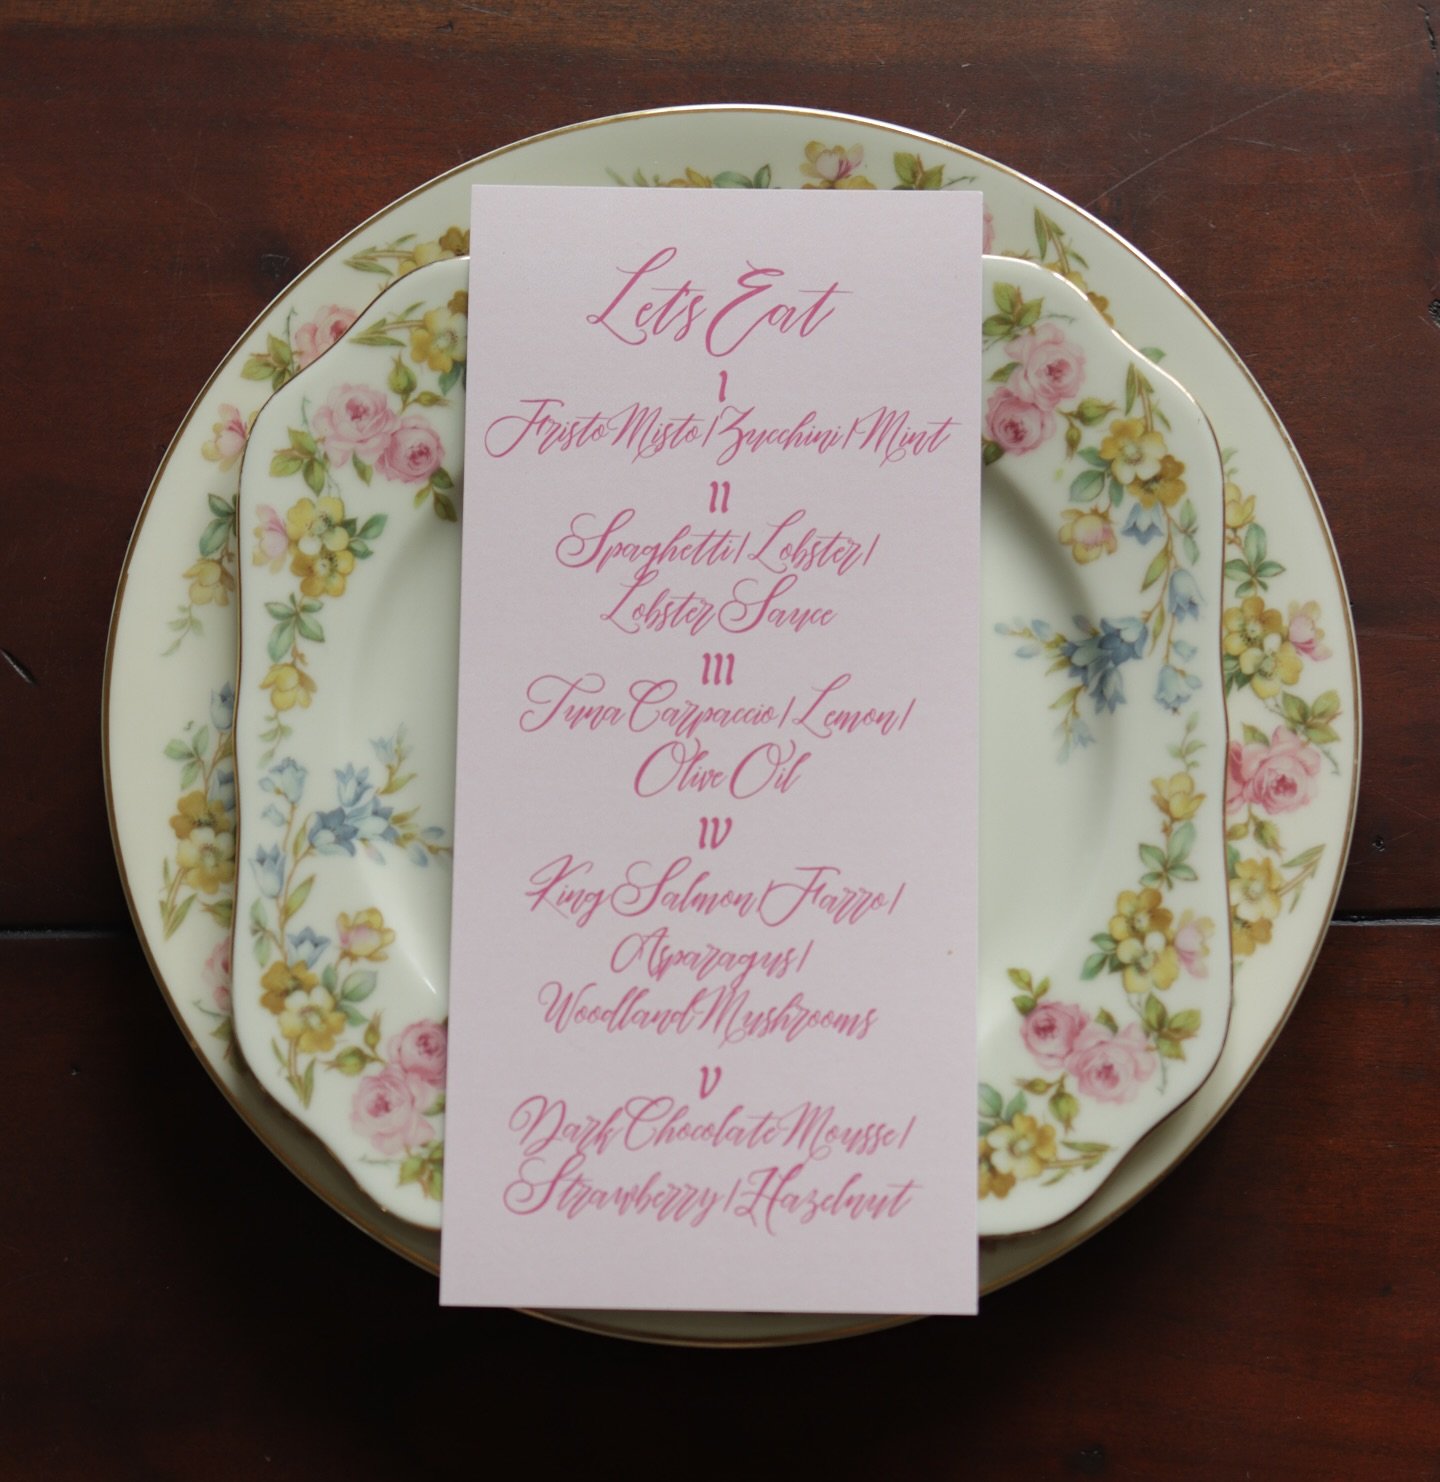 Let's Eat
I
Fristo Misto | Zucchini | Mint
II
Spaghetti | Lobster |
Lobster Sauce
III
Tuna Carpaccio | Lemon |
Olive Oil
IV
King Salmon | Farro |
Asparagus |
Woodland Mushrooms
V
Dark Chocolate Mousse |
Strawberry | Hazelnut